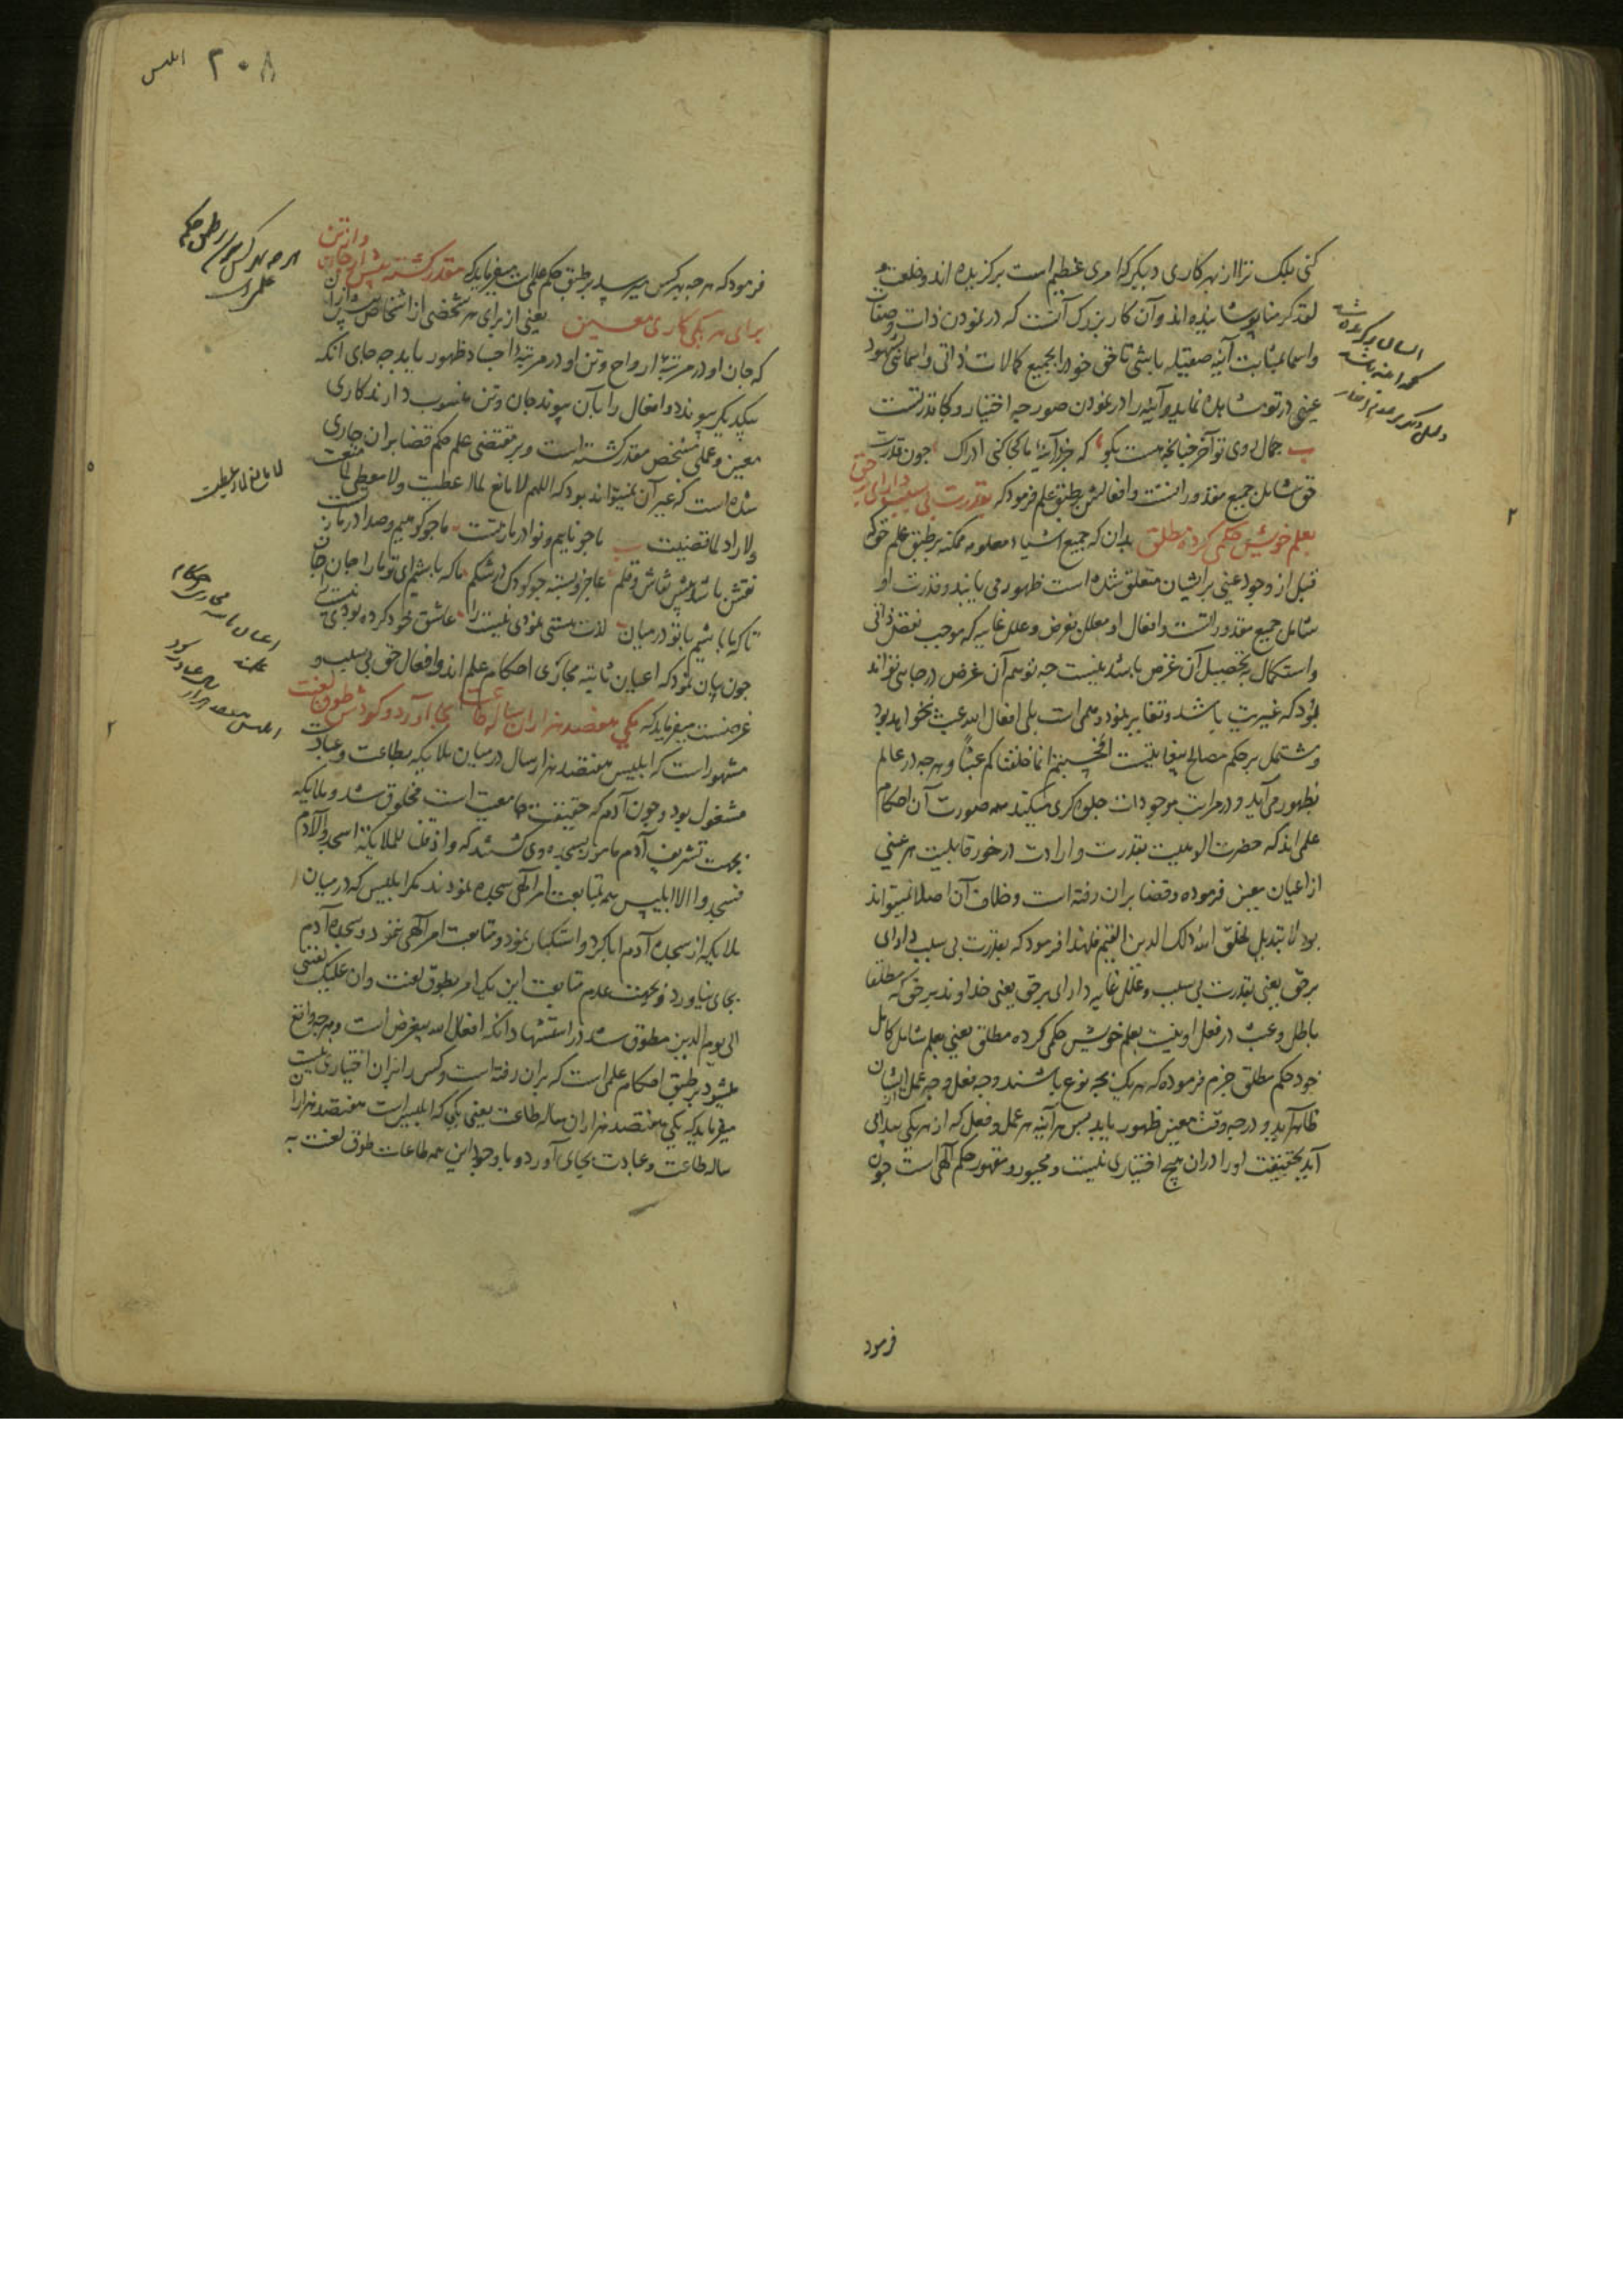 کنی بلک ترا از بهر کاری دیگر که امری عظیم است برگزیده اند و خلعت و
لقد کرمنا پوشانیده اند و آن کار بزرک آنست که در نمودن ذات و صفات
و اسما بمثابت آینه صقیله باشی تا حق خود را بجمیع کمالات ذاتی و اسمائی بشهود
عینی در تو مشاهده نماید و آینه را در نمودن صور چه اختیار و کجا قدرتست
جمال روی تو آخر چنانچه هست بکو که جز آینه ما کجا کنی ادراک چون قدرت
حق شامل جمیع مقدوراتست و افعالش بر طبق علم فرمود که بقدرت بی سبب دارای بر حق
بعلم خویش حکمی کرده مطلق بدان که جمیع اشیاء معلومه ممکنه بر طبق علم حق که
قبل از وجود عینی بر ایشان متعلق شده است ظهور می یابند و قدرت او
شامل جمیع مقدوراتست و افعال او معلل بغرض و علل غاییه که موجب نقص ذاتی
و استکمال به تحصیل آن غرض باشد نیست چه توهم آن غرض در جایی تواند
بود که غیریت باشد و تغایر نمود وهمی است بلی افعال الله عبث نخواهد بود
و مشتمل بر حکم مصالح بیغایتست افحسبتم انما خلقناکم عبثا و هرچه در عالم
بظهور می آید و در مراتب موجودات جلوه کری میکند همه صورت آن احکام
علمی اند که حضرت الوهیت بقدرت و ارادت در خور قابلیت هر عینی
از اعیان معین فرموده و قضا بر ان رفته است و خلاف آن اصلا نمیتواند
بود لا تبدیل لخلق الله ذلک الدین القیم فلهذا فرمود که بقدرت بی سبب دارای
بر حق یعنی بقدرت بی سبب و علل غاییه دارای بر حق یعنی خداوند بر حق که مطلقا
باطل و عبث در فعل او نیست بعلم خویش حکمی کرده مطلق یعنی بعلم شامل کامل
خود حکم مطلق جزم فرموده که هر یک بچه نوع باشند و چه فعل و چه عمل از ایشان
ظاهر آید و در چه وقت معین ظهور یابد پس هر آینه هر عمل و فعل که از هر یکی پیدا می
آید بحقیقت او را در ان هیچ اختیاری نیست و مجبور و مقهور حکم الهی است چون
فرمود
۲
۲۰۸
ابلیس
فرمود که هر چه بهر کس میرسد بر طبق حکم علمی است میفرماید که مقدر کشته پیش از جان و از تن
برای هر یکی کاری معین یعنی از برای هر شخصی از اشخاص پیش از ان
که جان او در مرتبه ارواح و تن او در مرتبه اجساد ظهور یابد چه جای انکه
بیکدیکر پیوندد و افعال را بآن پیوند جان و تن منسوب دارند کاری
معین و عملی مشخص مقدر کشته است و بر مقتضی علم حکم قضا بران جاری
شده است که غیر آن نمیتواند بود که اللهم لا مانع لما اعطیت و لا معطی لما منعت
و لا راد لما قضیت ما چو ناییم و نوا در ما ز تست ما چو کوهیم و صدا در ما ز تست
نقش باشد پیش نقاش و قلم عاجز و بسته چو کودک در شکم ما که باشیم ای تو ما را جان جان
تا که ما باشیم با تو در میان لذت هستی نمودی نیست را عاشق خود کرده بودی نیست را
چون بیان نمود که اعیان ثابته مجاری احکام علم اند و افعال حق بی سبب و
غرضست میفرماید که یکی هفصد هزاران ساله طاعت بجای آورد و کردش طوق لعنت
مشهور است که ابلیس هفتصد هزار سال در میان ملایکه بطاعت و عبادت
مشغول بود و چون آدم که حقیقت جامعیت است مخلوق شد و ملایکه
بجهت تشریف آدم مامور بسجده وی کشتند که و اذ قلنا للملایکة اسجدوا لآدم
فسجدوا الا ابلیس همه بمتابعت امر الهی سجده نمودند مکر ابلیس که در میان
ملایکه از سجده آدم ابا کرد و استکبار نمود و متابعت امر الهی ننمود و سجده آدم
بجای نیاورد و بجهت عدم متابعت این یک امر بطوق لعنت و ان علیک لعنتی
الی یوم الدین مطوق شد در استشهاد انکه افعال الله بیغرض است و هرچه واقع
میشود بر طبق احکام علمی است که بران رفته است و کس را بران اختیاری نیست
میفرماید که یکی هفتصد هزاران ساله طاعت یعنی یکی که ابلیس است هفتصد هزاران
ساله طاعت و عبادت بجای آورد و با وجود این همه طاعات طوق لعنت به
لا مانع لما اعطیت
۵
۲